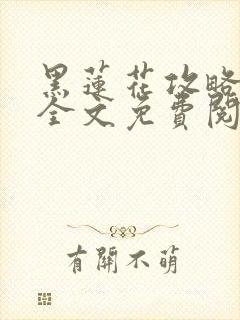 黑蓮花攻略
全文免費閱
有開不萌